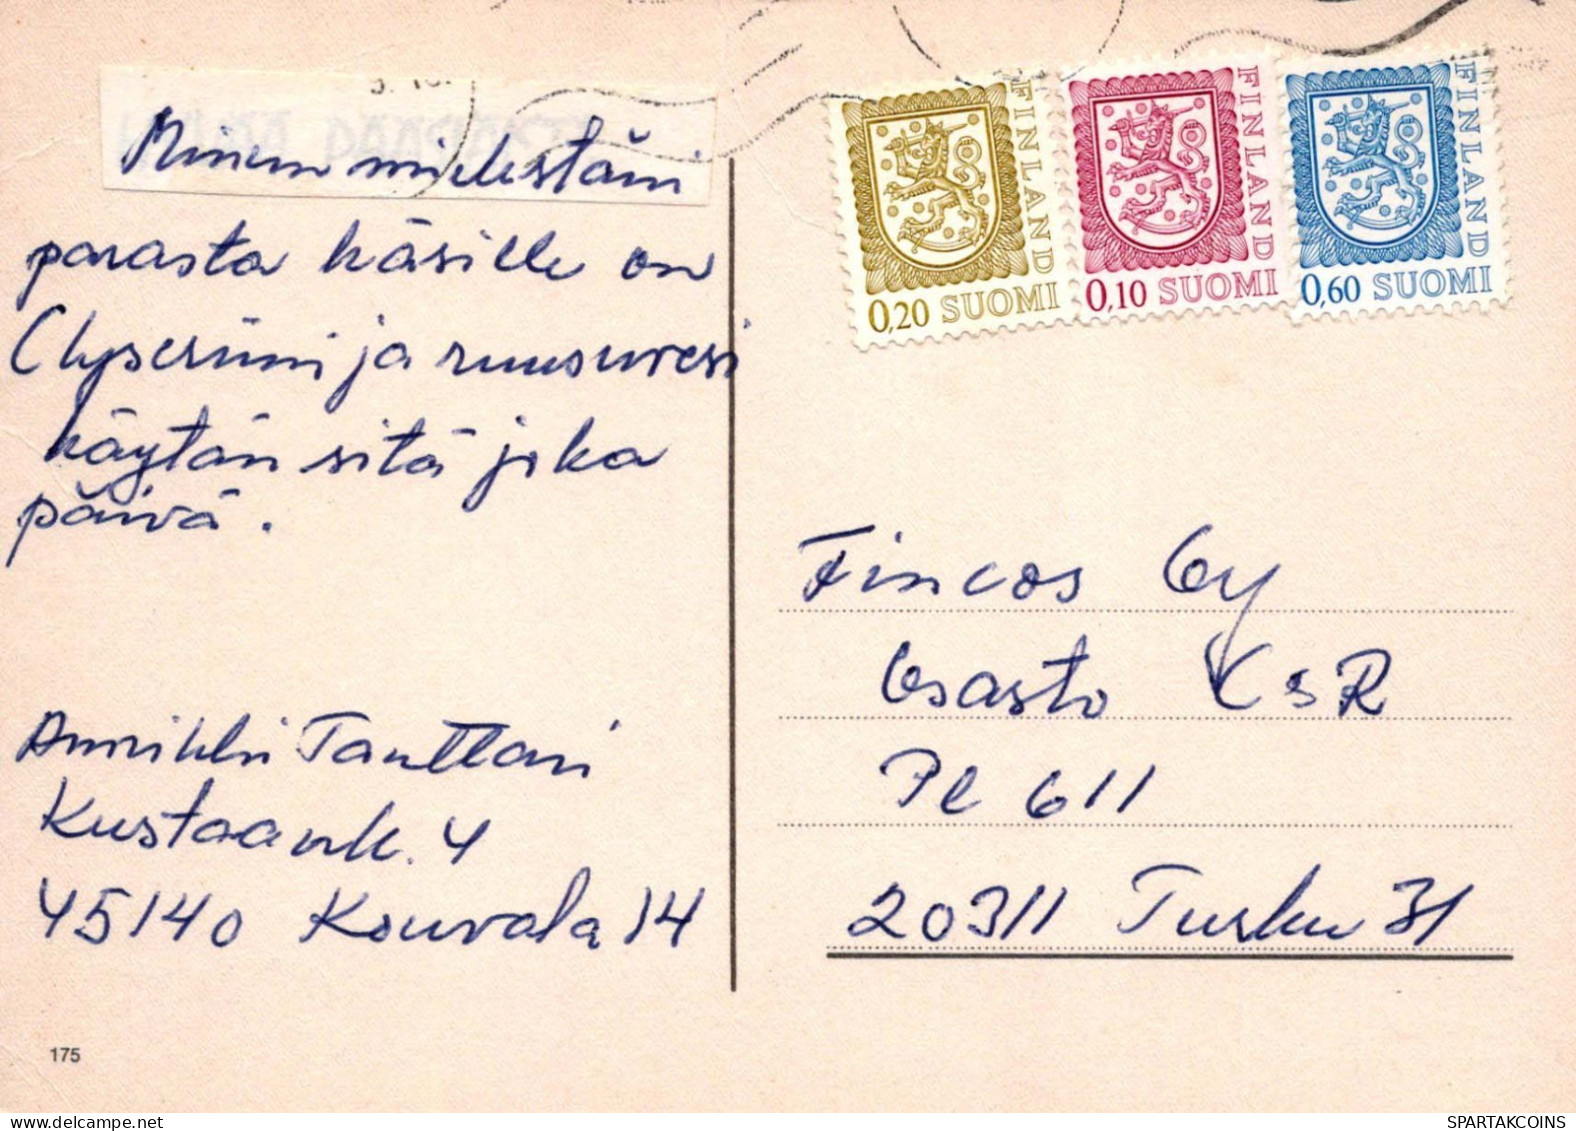 Minun mielestäni
parasta käsille on
Clyseriini ja ruusuvesi
käytän sitä joka
päivä.
Annikki Tanttari
Kustaank. 4
45140 Kouvola 14
175
FINLAND
0,20 SUOMI
FINLAND
0,10 SUOMI
FINLAND
0,60 SUOMI
Fincos Oy
Osasto KsR
PL 611
20311 Turku 31
SPARTAKCOINS